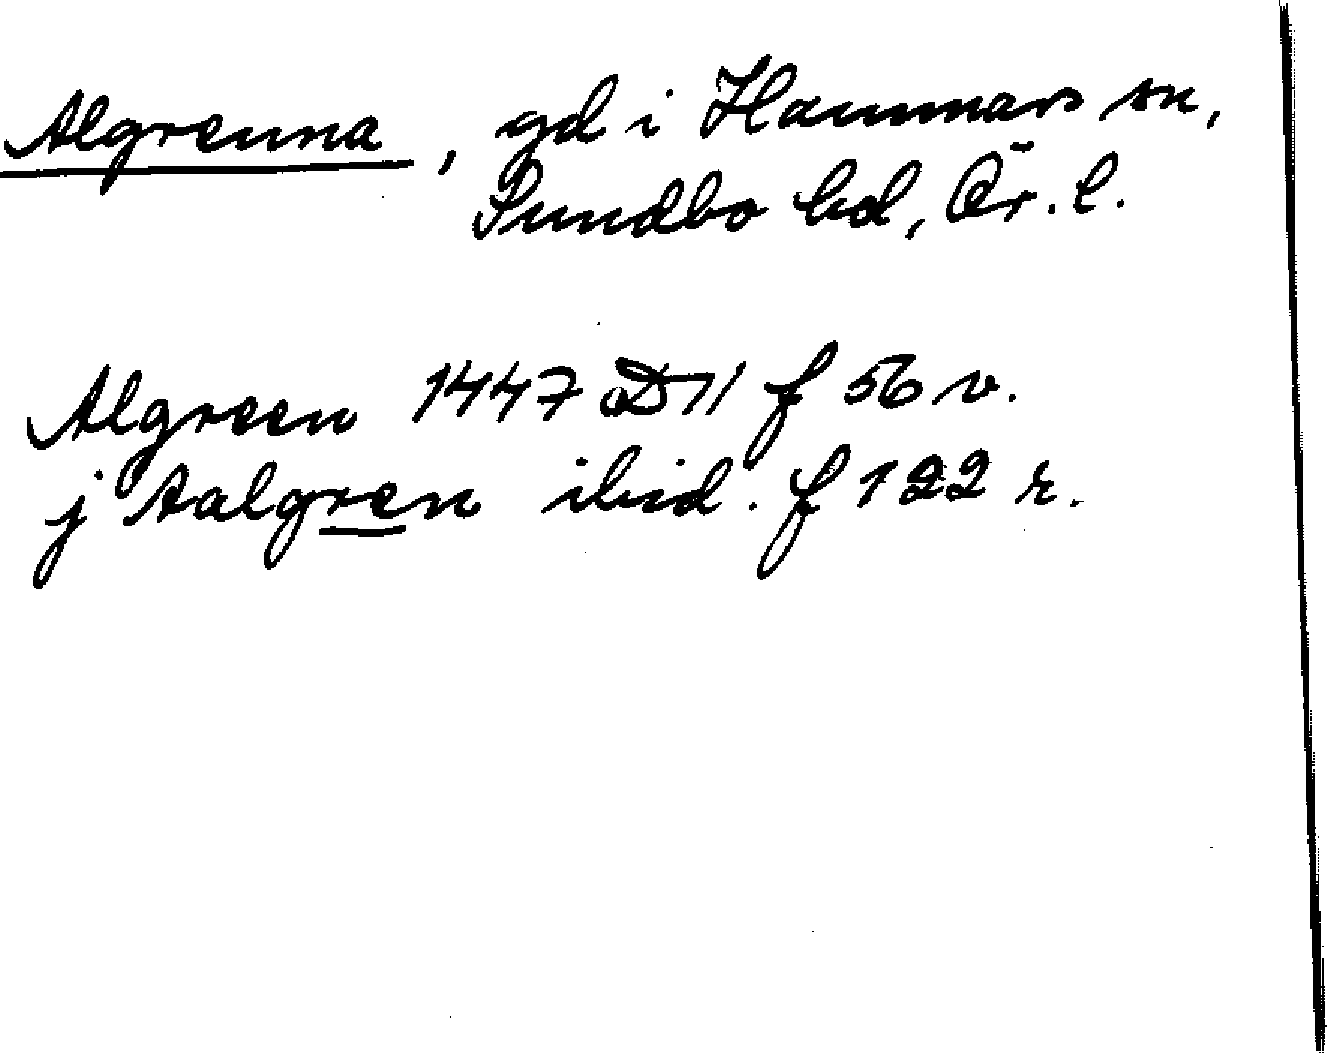 Algrenna, gd i Hammars sn,
Sundbo hd, Ör. l.
Algreen 1447 D11 f 56 v.
j Aalgren ibid. f 122 r.